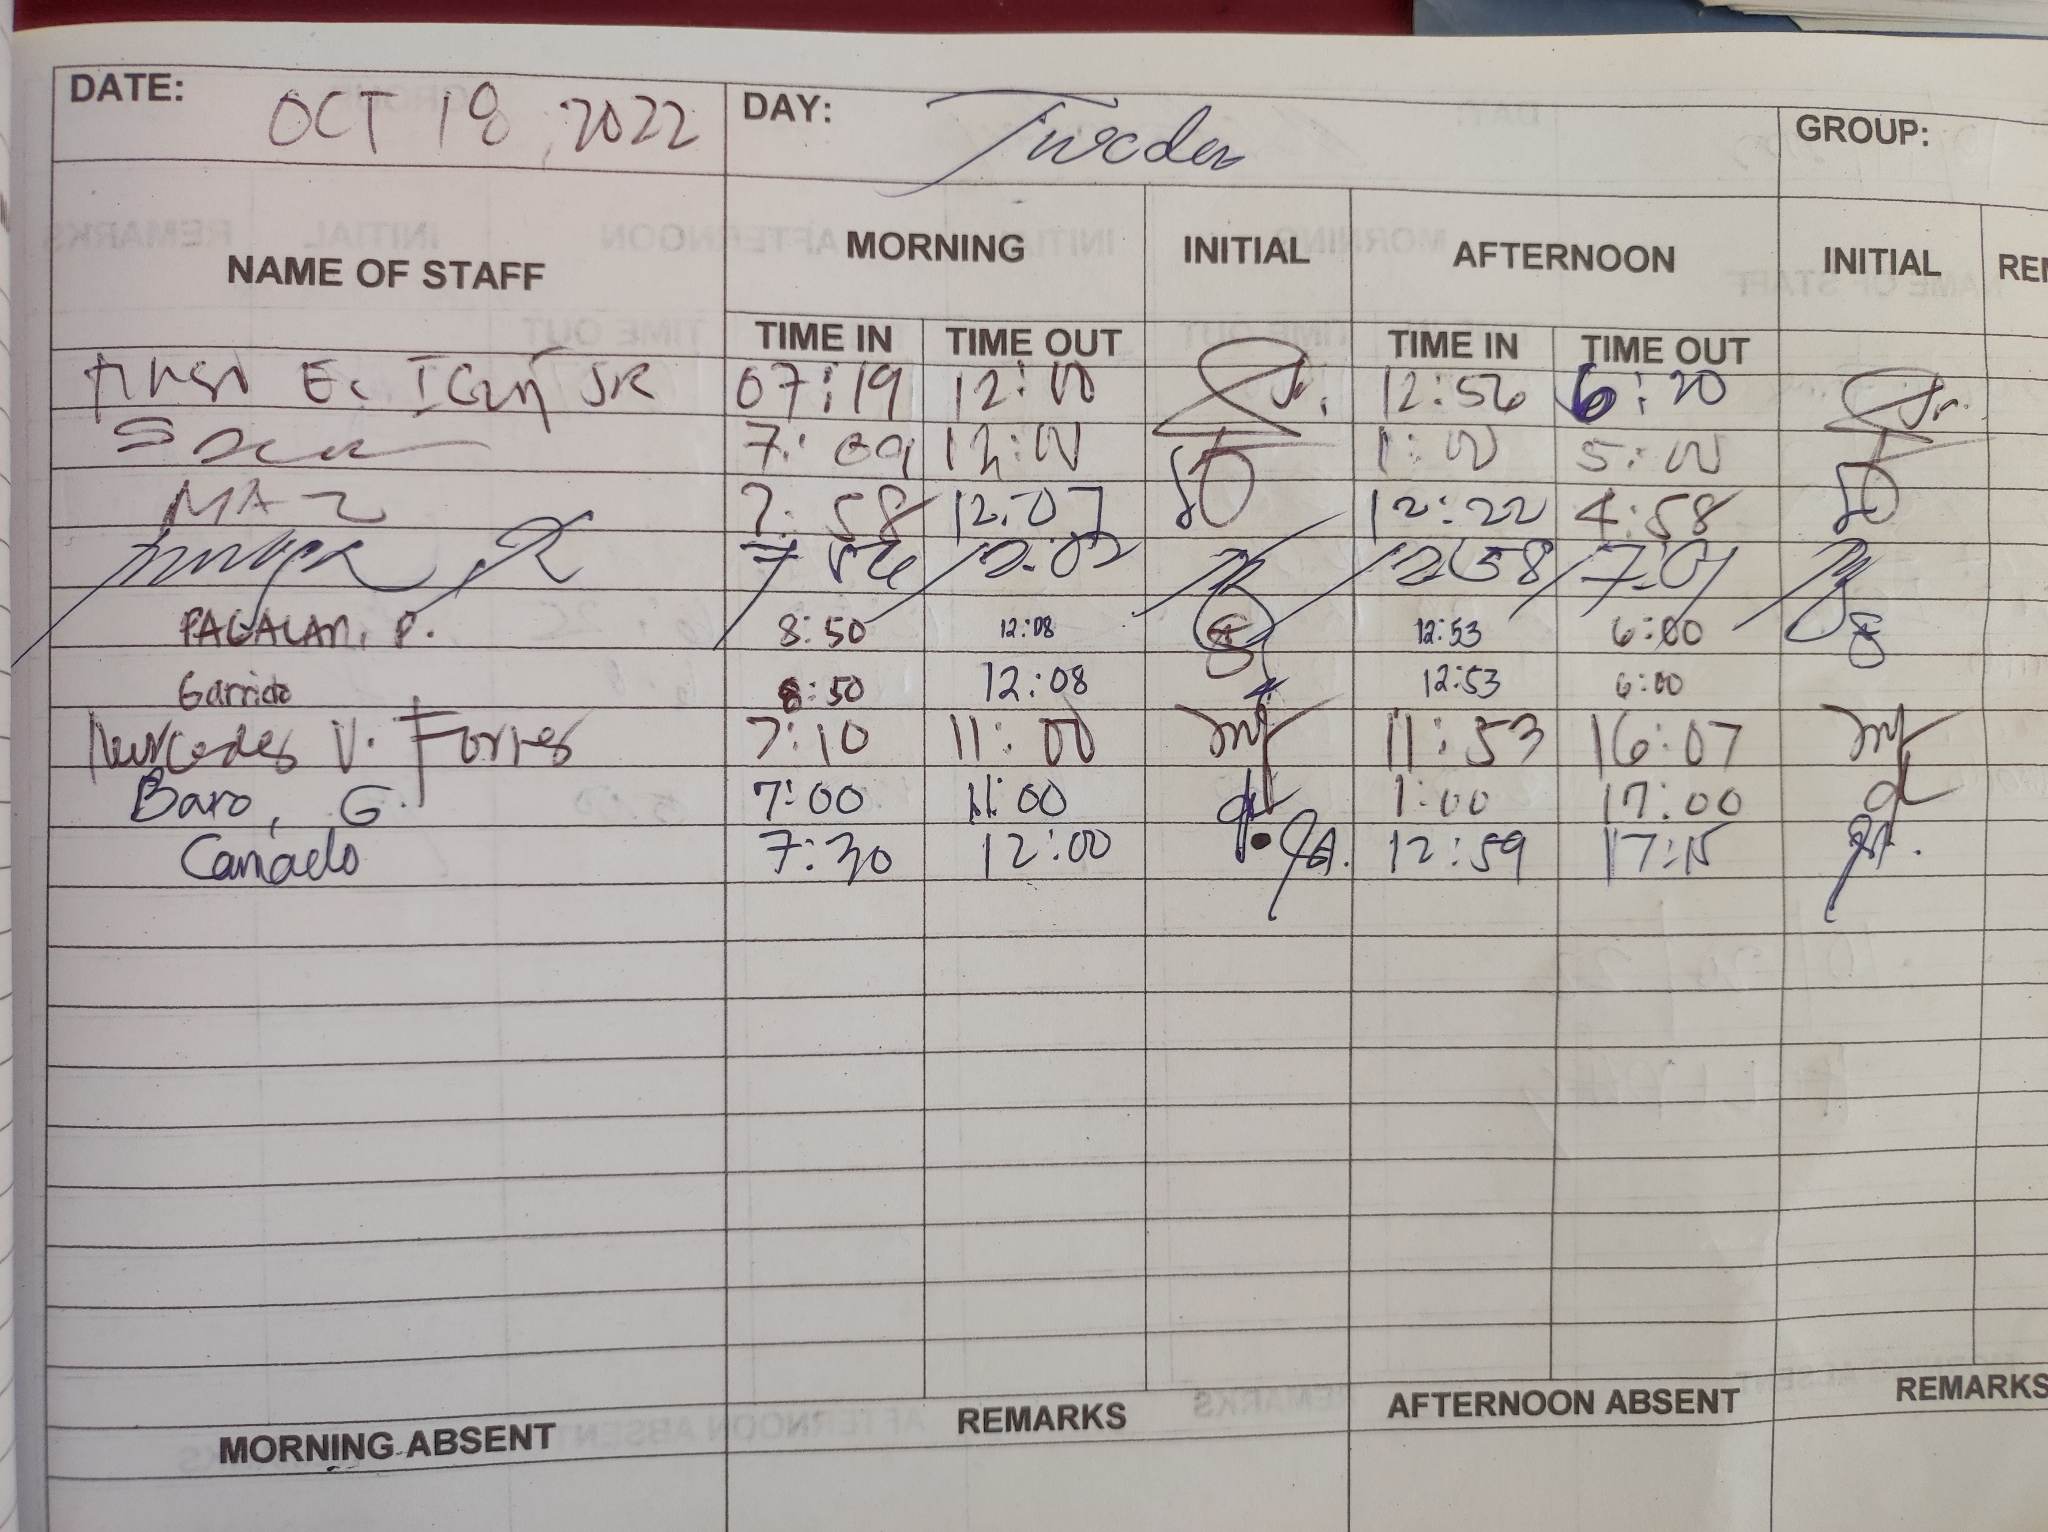 DATE: OCT 18, 2022 DAY: GROUP:
NAME OF STAFF MORNING INITIAL AFTERNOON INITIAL
TIME IN TIME OUT TIME IN TIME OUT
E. JR 07:19 12:00 Jr. 12:56 6:20 Jr.
7:09 12:00 1:00 5:00
MAZ 7:58 12:07 12:22 4:58
7 12:58 7:01
PAGALAN, P. 8:50 12:08 12:53 6:00
Garrido 8:50 12:08 12:53 6:00
Mercedes V. Torres 7:10 11:00 11:53 16:07
Baro, G. 7:00 11:00 1:00 17:00
Cañado 7:30 12:00 12:59 17:15
MORNING ABSENT REMARKS AFTERNOON ABSENT REMARKS